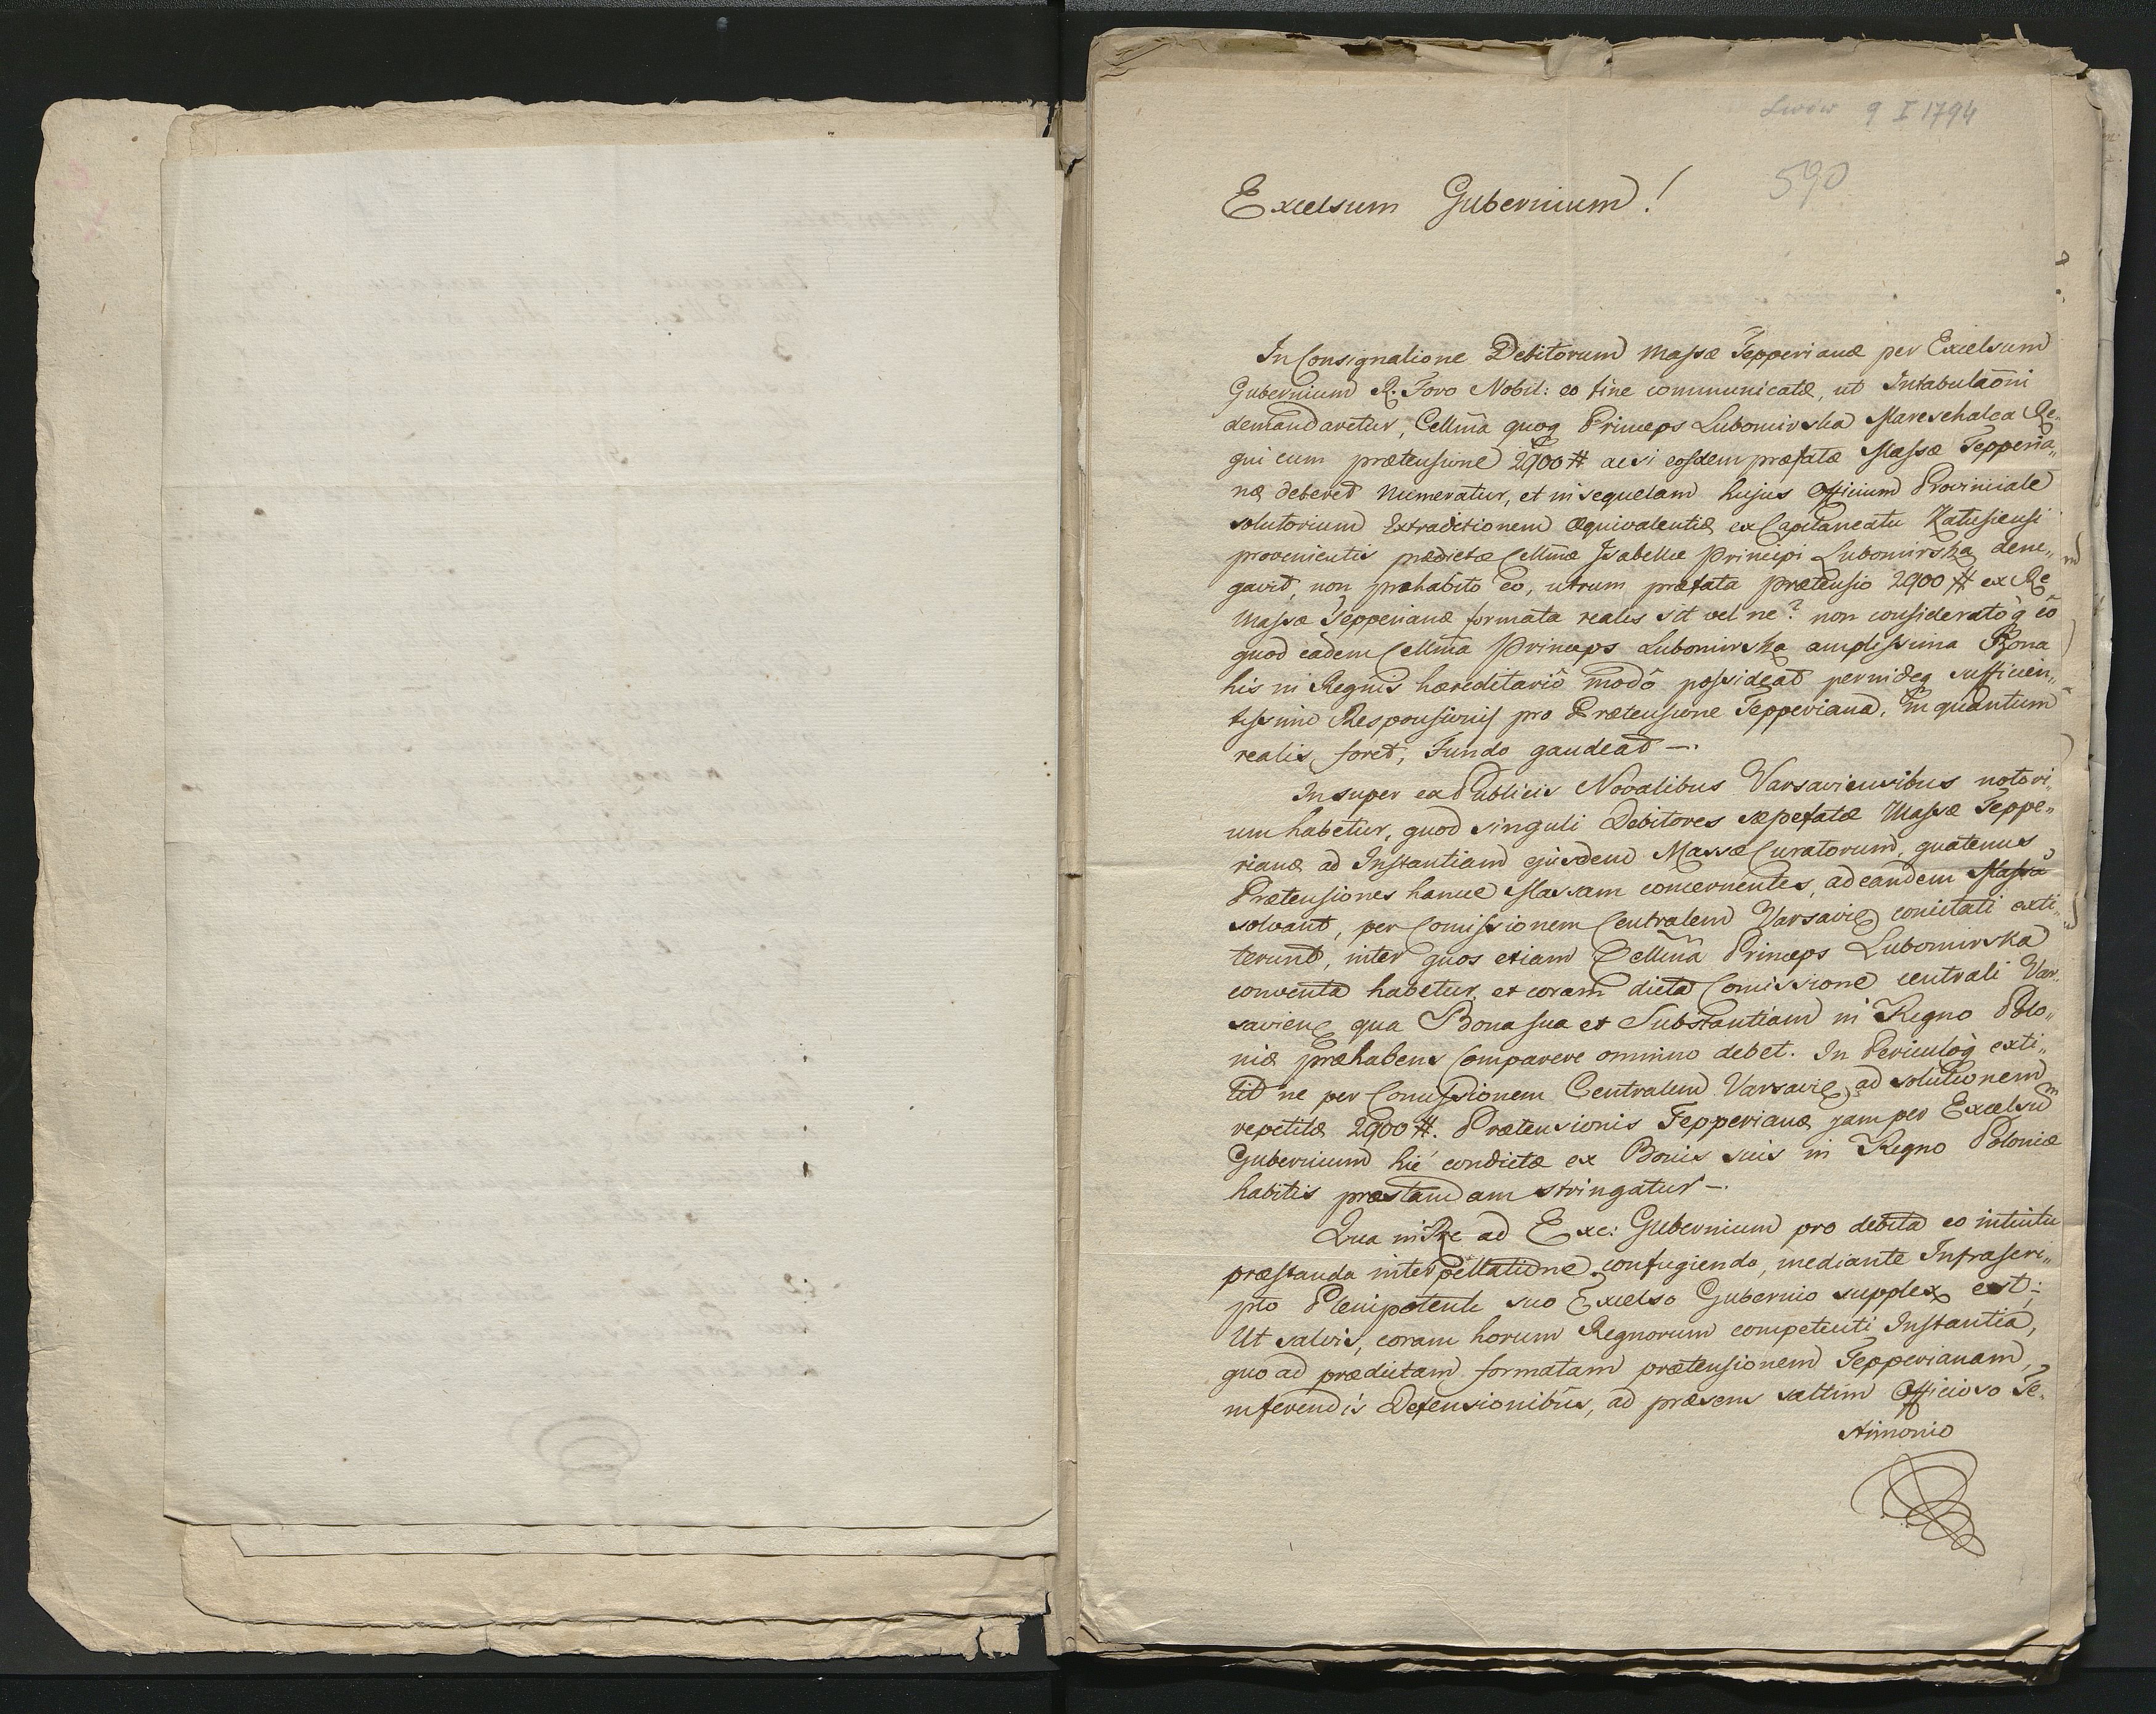 Lwów 9 I 1794
590
Excelsum Gubernium!
In Consignatione Debitorum Massæ Tepperianæ per Excelsum
Gubernium R. Foro Nobil: eo fine communicatæ, ut Intabulaõni
demandaretur, Cellm̃a quoq Princeps Lubomirska Mareschalca Re„
gni cum prætensione 2900 # acsi eosdem præfatæ Massæ Tepperia„
næ deberet numeratur, et in sequelam hujus Officium Provinciale
solutorium Extraditionem Æquivalentiæ ex Capitaneatu Kalusiensi
provenientis prædictæ Cellm̃æ Isabellæ Principi Lubomirska dene„
gavit, non præhabito eo, utrum præfata prætensio 2900 # ex Re
Massæ Tepperianæ formata realis sit vel ne? non consideratoq eo
quod eadem Cellm̃a Princeps Lubomirska amplissima Bona
his in Regnis hæreditario modô possideat perindeq sufficien„
tissimo Responsionis pro Prætensione Tepperiana, in quantum
realis foret, Fundo gaudeat —.
Insuper ex Publicis Novalibus Varsaviensibus notori„
um habetur, quod singuli Debitores sæpefatæ Massæ Teppe„
rianæ ad Instantiam ejusdem Massæ Curatorum, quatenus
Prætensiones hance Massam concernentes, ad eandem Massã
solvant, per Comissionem Centralem Varsaviẽ concitati exti„
terunt, inter quos etiam Cellm̃a Princeps Lubomirska
conventa habetur, et coram dicta Comissione centrali Var„
savien qua Bona sua et Substantiam in Regno Polo„
niæ præhabens Comparere omnino debet. In Periculoq exti„
tit ne per Comissionem Centralem Varsavien ad solutionem
repetitæ 2900 #. Prætensionis Tepperianæ jam per Excelsũ
Gubernium hic condictæ ex Bonis suis in Regno Poloniæ
habitis præstandam stringatur —.
Qua in Re ad Exc: Gubernium pro debita eo intuitu
præstanda interpellatione confugiendo, mediante Infrascri„
pto Plenipotente suo Excelso Gubernio supplex est;
Ut salvis, coram horum Regnorum competenti Instantia,
quo ad prædictam formatam prætensionem Tepperianam,
inferendis Defensionibus, ad præsens saltim Officioso Te„
stimonio